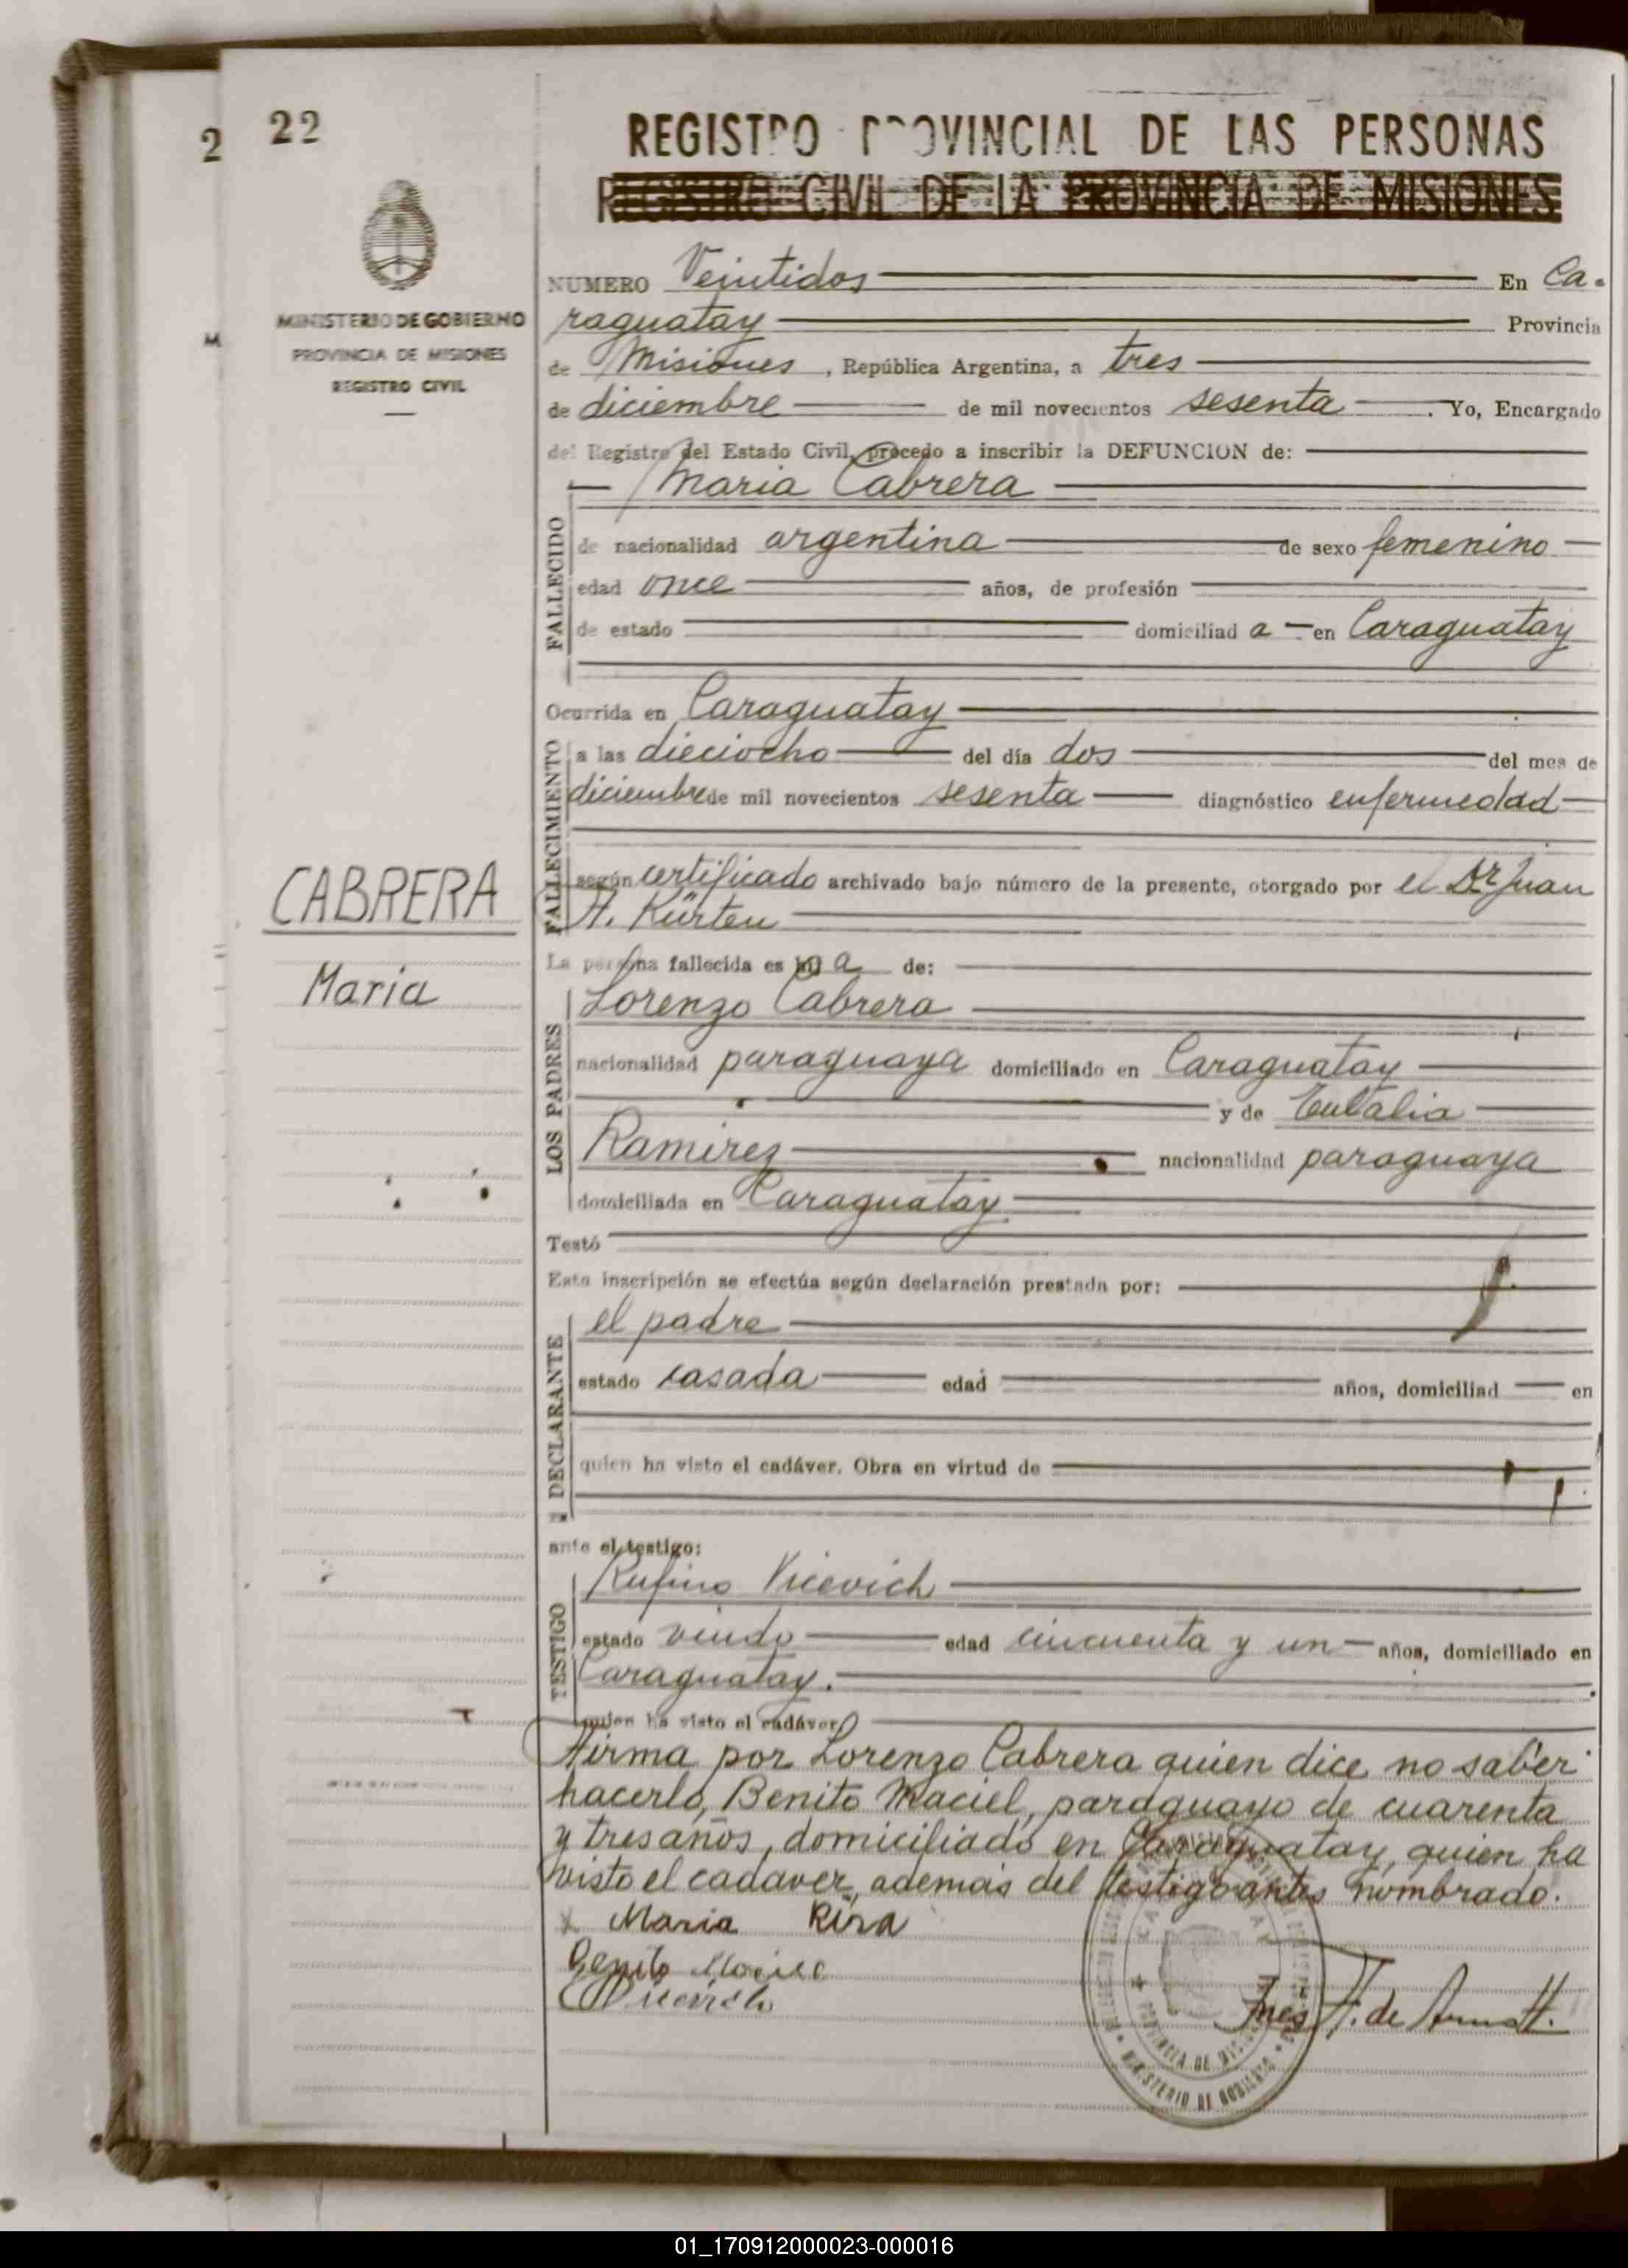 2
22
REGISTRO PROVINCIAL DE LAS PERSONAS
REGISTRO CIVIL DE LA PROVINCIA DE MISIONES
M
MINISTERIO DE GOBIERNO
PROVINCIA DE MISIONES
REGISTRO CIVIL
NUMERO Veintidos En Ca-
raguatay Provincia
de Misiones, República Argentina, a tres
de diciembre de mil novecientos sesenta. Yo, Encargado
del Registro del Estado Civil, procedo a inscribir la DEFUNCION de:
Maria Cabrera
FALLECIDO
de nacionalidad argentina de sexo femenino
edad once años, de profesión
de estado domiciliad a en Caraguatay
Ocurrida en Caraguatay
FALLECIMIENTO
a las dieciocho del día dos del mes de
diciembre de mil novecientos sesenta diagnóstico enfermedad
según certificado archivado bajo número de la presente, otorgado por el Dr Juan
A. Kürten
CABRERA
Maria
La persona fallecida es hij a de:
LOS PADRES
Lorenzo Cabrera
nacionalidad paraguaya domiciliado en Caraguatay
y de Eulalia
Ramirez nacionalidad paraguaya
domiciliada en Caraguatay
Testó
Esta inscripción se efectúa según declaración prestada por:
DECLARANTE
el padre
estado casada edad años, domiciliad en
quien ha visto el cadáver. Obra en virtud de
ante el testigo:
TESTIGO
Rufino Vicevich
estado viudo edad cincuenta y un años, domiciliado en
Caraguatay.
quien ha visto el cadáver
Firma por Lorenzo Cabrera quien dice no saber
hacerlo, Benito Maciel, paraguayo de cuarenta
y tres años, domiciliado en Caraguatay, quien ha
visto el cadaver, además del testigo antes nombrado.
x Maria Rira
Benito Maciel
Inés H. de
PROVINCIA DE MISIONES
MINISTERIO DE GOBIERNO
01_170912000023-000016